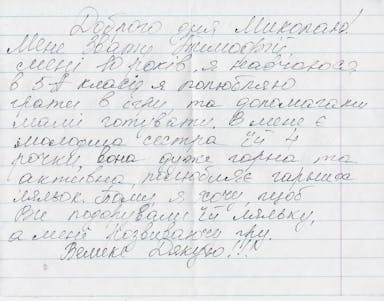 Доброго дня Миколаю!
Мене звати Тимофій
мені 10 років, я навчаюся
в 5-А класі, я полюбляю
грати в ігри, та допомагати
мамі готувати. В мене є
молодша сестра їй 4
рочки, вона дуже гарна та
активна, полюбляє гарних
ляльок. Тому я хочу, щоб
Ви подарували їй ляльку,
а мені розвиваючу гру.
Велике Дякую!!!